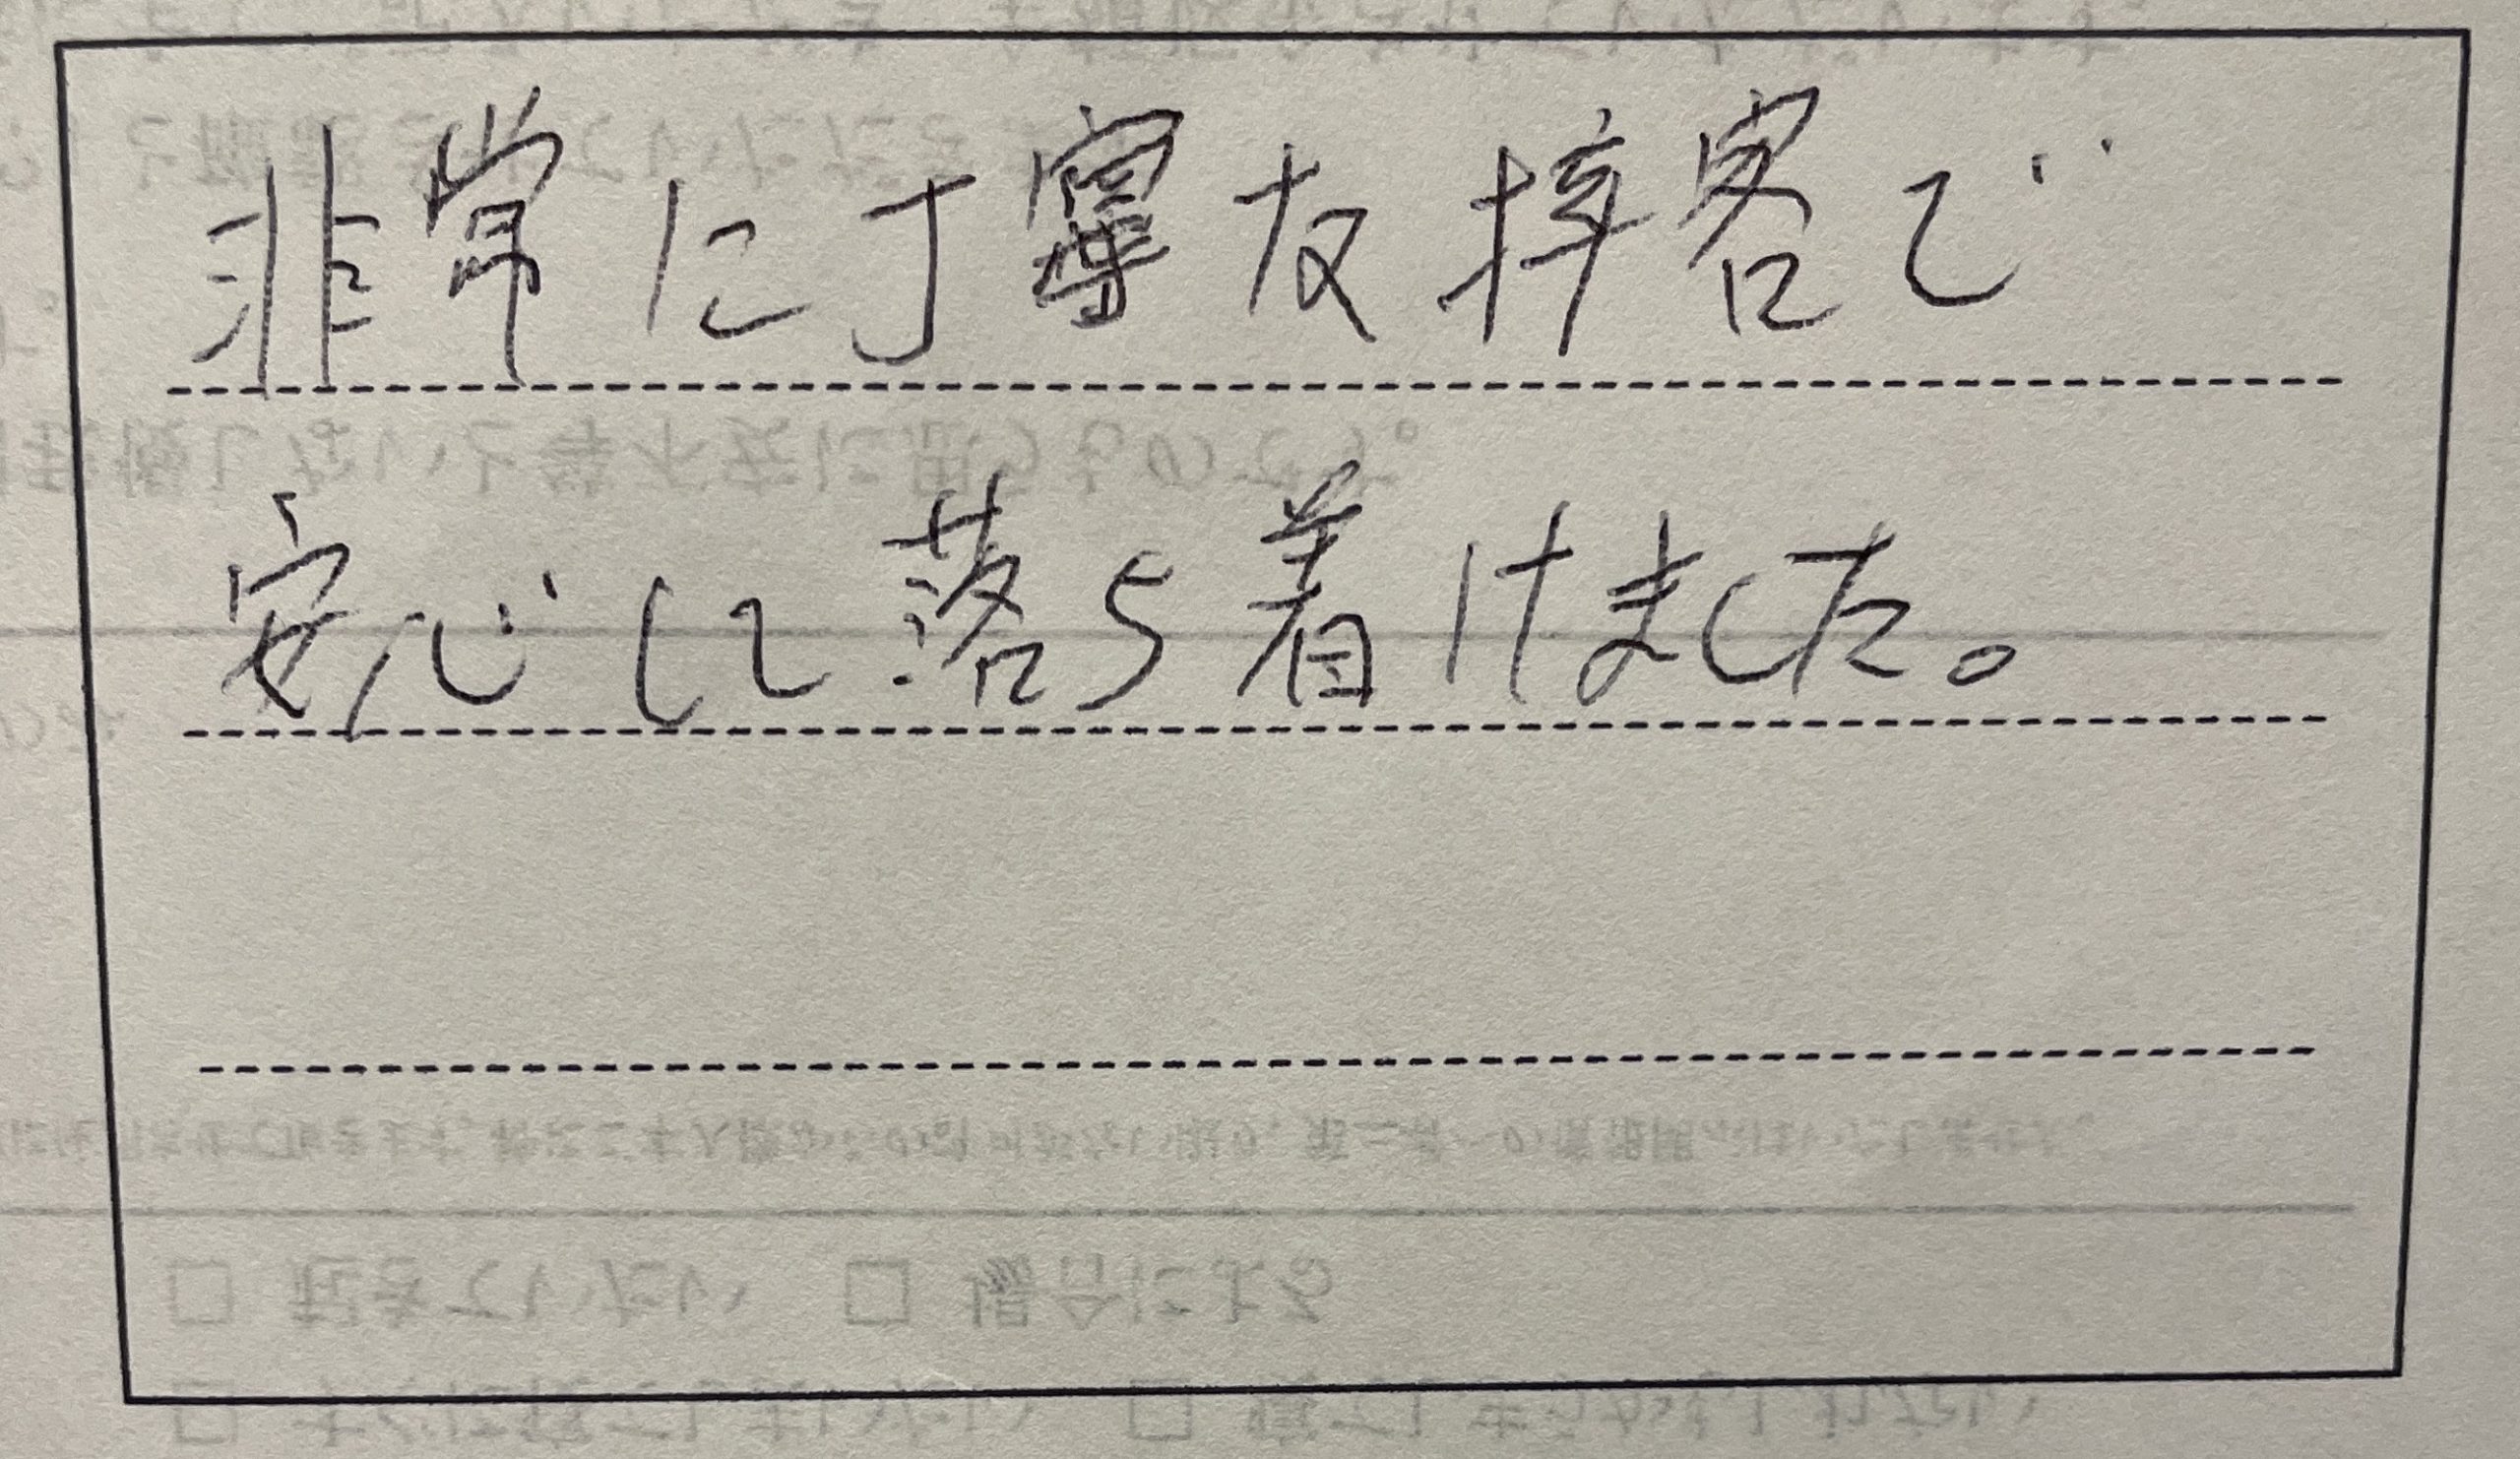 非常に丁寧な接客で
安心して落ち着けました。